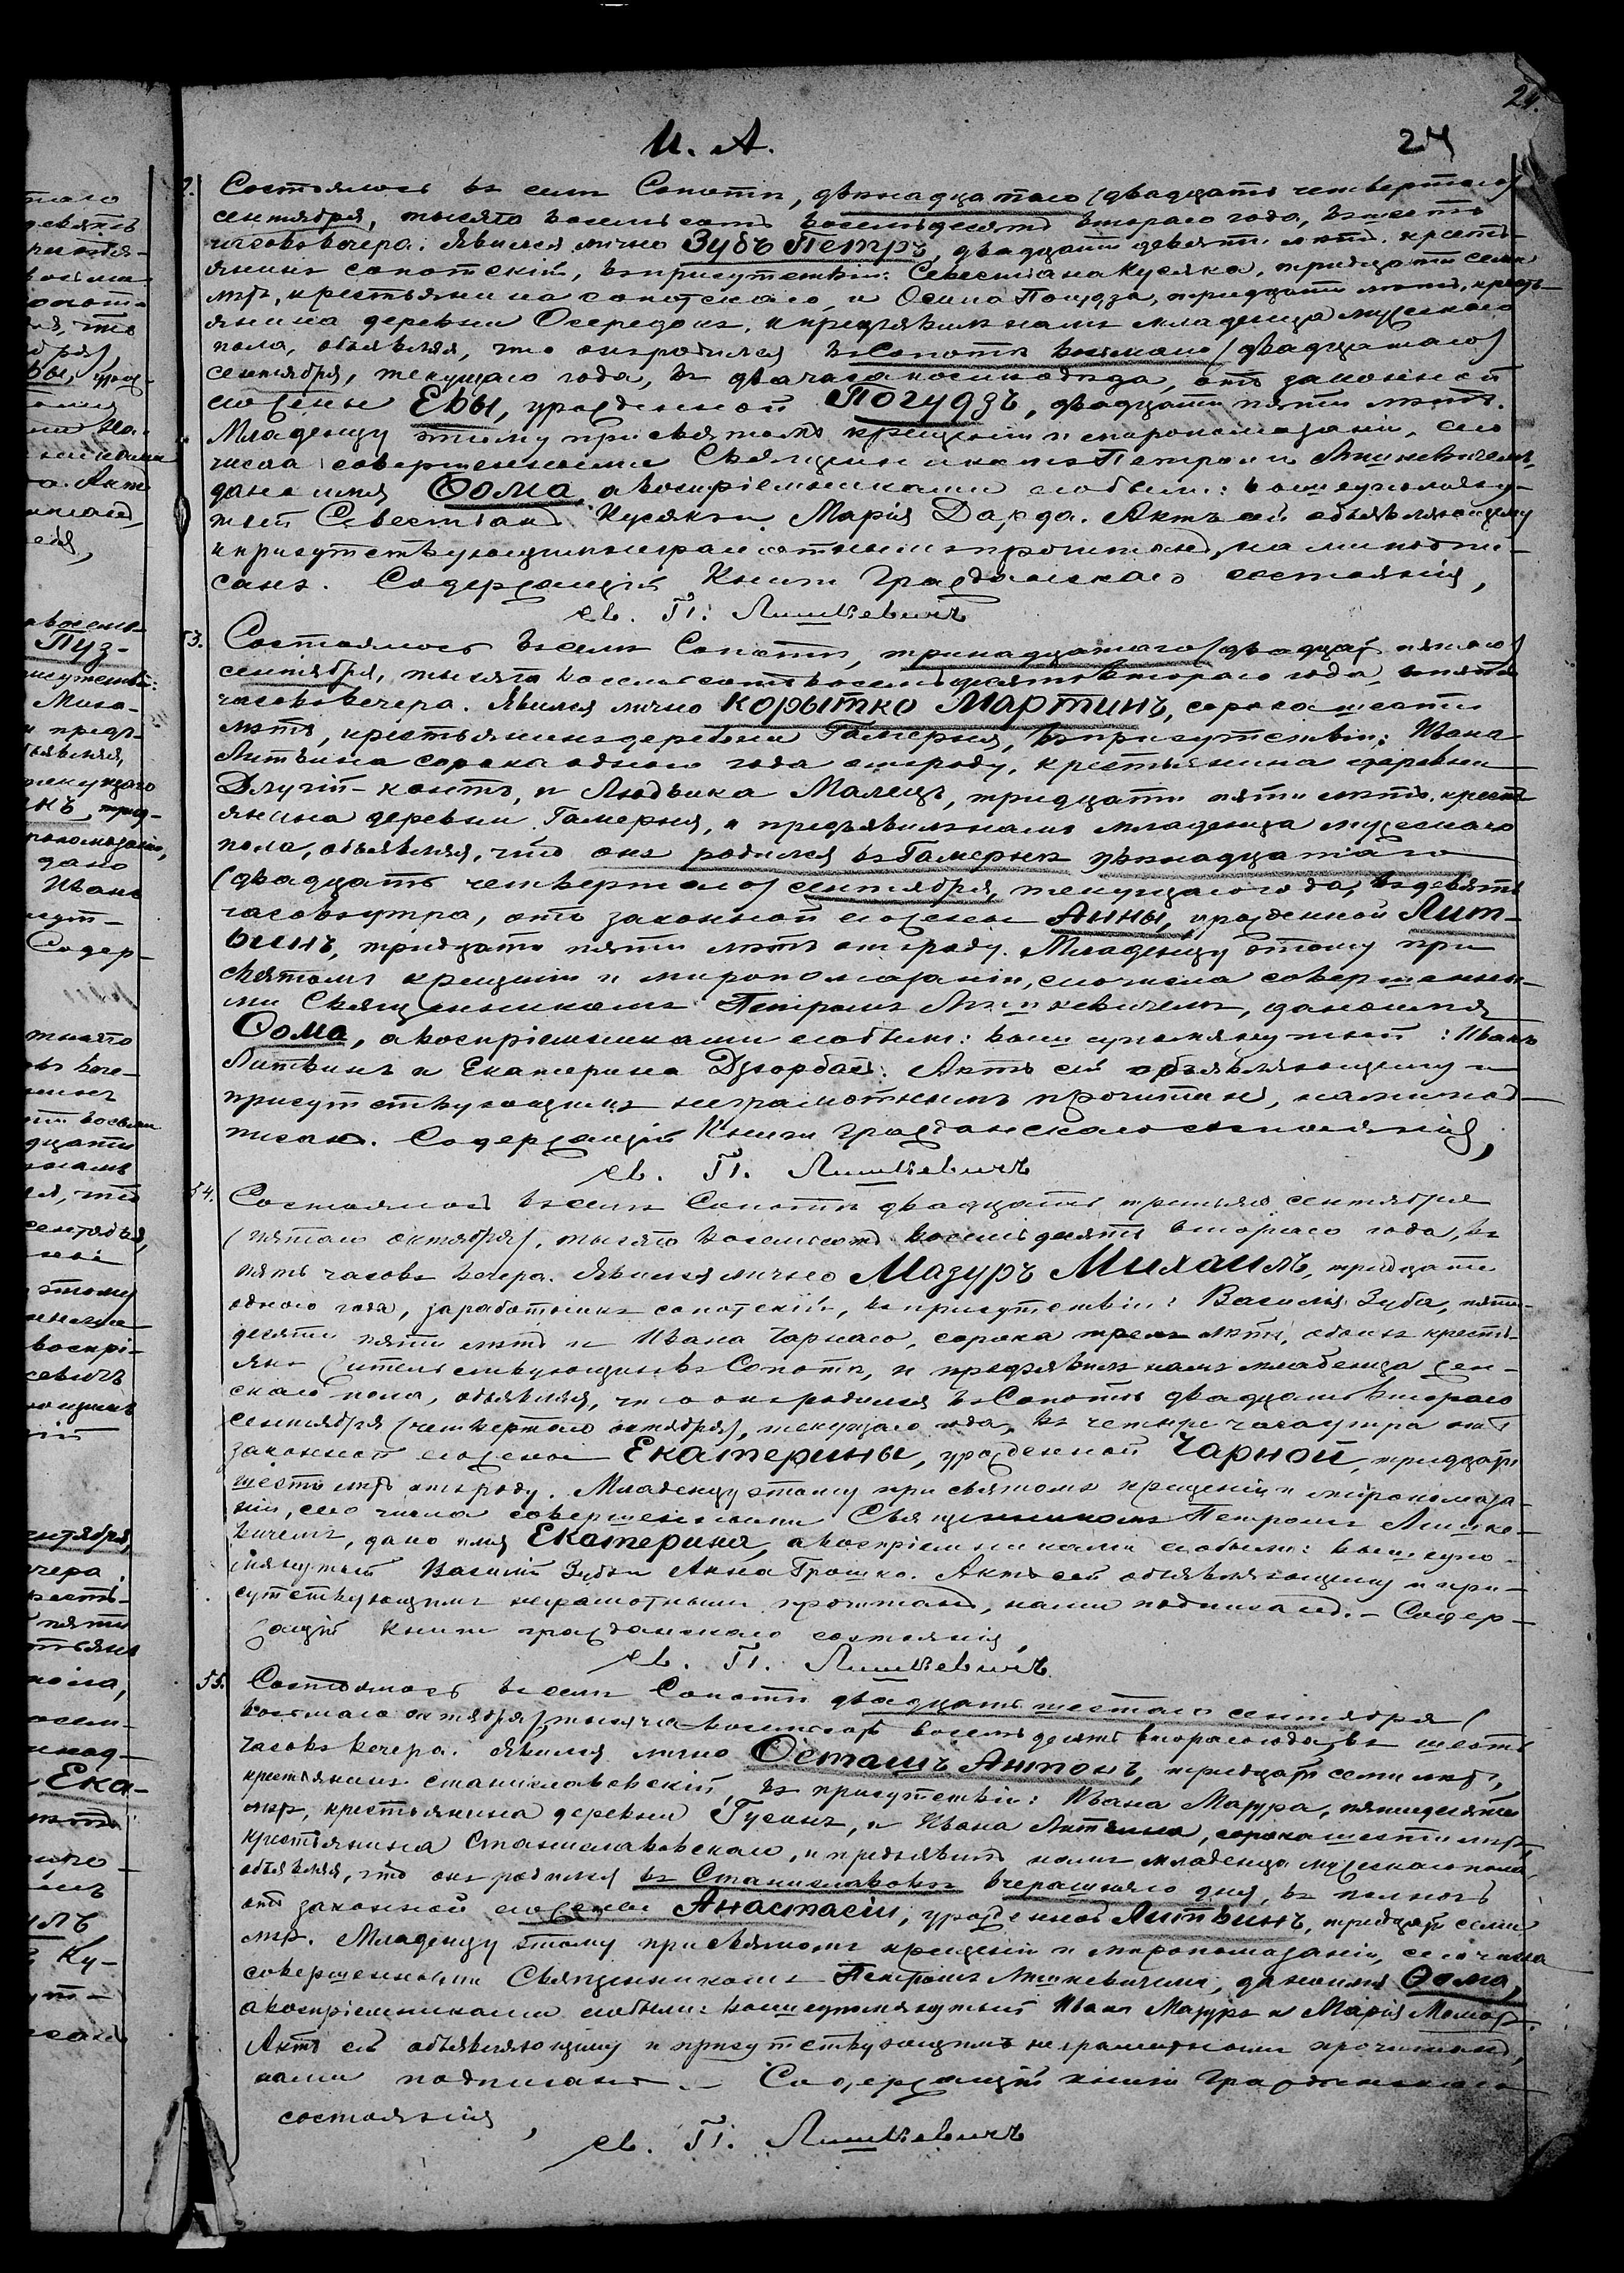 24.
И. А.
24
2. Состоялось въ селѣ Сопотѣ, двѣнадцатаго (двадцать четвертаго)
сентября, тысяча восемьсотъ восемьдесятъ втораго года, въ шесть
часовъ вечера. Явился лично Зубъ Петръ, двадцати девяти лѣтъ, кресть-
янинъ сопотскій, въ присутствіи: Севестіана Кусяка, тридцати семи
лѣтъ, крестьянина сопотскаго, и Осипа Погудза, тридцати лѣтъ, кресть-
янина деревни Осередокъ, и предъявилъ намъ младенца мужескаго
пола, объявляя, что онъ родился въ Сопотѣ восьмаго (двадцатаго)
сентября, текущаго года, въ два часа пополудни, отъ законной
его жены Евы, урожденной Погудзъ, двадцати пяти лѣтъ.
Младенцу этому при святомъ крещеніи и миропомазаніи, сего
числа совершенными Священникомъ Петромъ Лишкевичемъ,
дано имя Ѳома, а воспріемниками его были: вышеупомяну-
тый Севестіанъ Кусякъ и Марія Дарда. Актъ сей объявляющему
и присутствующимъ неграмотнымъ прочитанъ, нами подпи-
санъ. Содержащій Книги Гражданскаго состоянія,
св. П. Лишкевичъ
53. Состоялось въ селѣ Сопотѣ, тринадцатаго (двадцать пятаго)
сентября, тысяча восемьсотъ восемьдесятъ втораго года, въ пять
часовъ вечера. Явился лично Корытко Мартинъ, сорока шести
лѣтъ, крестьянинъ деревни Гамерня, въ присутствіи: Ивана
Литвина сорока одного года отъ роду, крестьянина деревни
Длугій-контъ, и Людвика Малецъ, тридцати пяти лѣтъ, кресть-
янина деревни Гамерня, и предъявилъ намъ младенца мужескаго
пола, объявляя, что онъ родился въ Гамернѣ двѣнадцатаго
(двадцать четвертаго) сентября, текущаго года, въ девять
часовъ утра, отъ законной его жены Анны, урожденной Лит-
винъ, тридцати пяти лѣтъ отъ роду. Младенцу этому при
святомъ крещеніи и миропомазаніи, сего числа совершенны-
ми Священникомъ Петромъ Лишкевичемъ, дано имя
Ѳома, а воспріемниками его были: вышеупомянутый: Иванъ
Литвинъ и Екатерина Дзюрбай. Актъ сей объявляющему и
присутствующимъ неграмотнымъ прочитанъ, нами под-
писанъ. Содержащій Книги Гражданскаго состоянія,
св. П. Лишкевичъ
54. Состоялось въ селѣ Сопотѣ двадцать третьяго сентября
(пятаго октября), тысяча восемьсотъ восемьдесятъ втораго года, въ
пять часовъ вечера. Явился лично Мазуръ Михаилъ, тридцати
одного года, заработникъ сопотскій, въ присутствіи: Василія Зуба, пяти-
десяти пяти лѣтъ и Ивана Чарнаго, сорока трехъ лѣтъ, обоихъ кресть-
янъ жительствующихъ въ Сопотѣ, и предъявилъ намъ младенца жен-
скаго пола, объявляя, что онъ родился въ Сопотѣ двадцать втораго
сентября (четвертаго октября), текущаго года, въ четыре часа утра отъ
законной его жены Екатерины, урожденной Чарной, тридцати
шести лѣтъ отъ роду. Младенцу этому при святомъ крещеніи и миропомаза-
ніи, сего числа совершенными Священникомъ Петромъ Лишке-
вичемъ, дано имя Екатерина, а воспріемниками его были: вышеупо-
мянутый Василій Зубъ и Анна Грошко. Актъ сей объявляющему и при-
сутствующимъ неграмотнымъ прочитанъ, нами подписанъ. - Содер-
жащій Книги гражданскаго состоянія,
св. П. Лишкевичъ
55. Состоялось въ селѣ Сопотѣ двадцать шестаго сентября (
восьмаго октября) тысяча восемьсотъ восемьдесятъ втораго года, въ шесть
часовъ вечера. Явился лично Осташъ Антонъ, тридцати семи лѣтъ,
крестьянинъ станиславовскій, въ присутствіи: Ивана Мазура, пятидесяти
лѣтъ, крестьянина деревни Гусинъ, и Ивана Литвина, сорока шести лѣтъ,
крестьянина Станиславовскаго, и предъявилъ намъ младенца мужескаго пола,
объявляя, что онъ родился въ Станиславовѣ вчерашняго дня, въ полночь
отъ законной его жены Анастасіи, урожденной Литвинъ, тридцати семи
лѣтъ. Младенцу этому при святомъ крещеніи и миропомазаніи, сего числа
совершенными Священникомъ Петромъ Лишкевичемъ, дано имя Ѳома,
а воспріемниками его были: вышеупомянутый Иванъ Мазуръ и Марія
Актъ сей объявляющему и присутствующимъ неграмотнымъ прочитанъ,
нами подписанъ. - Содержащій книги Гражданскаго
состоянія,
св. П. Лишкевичъ